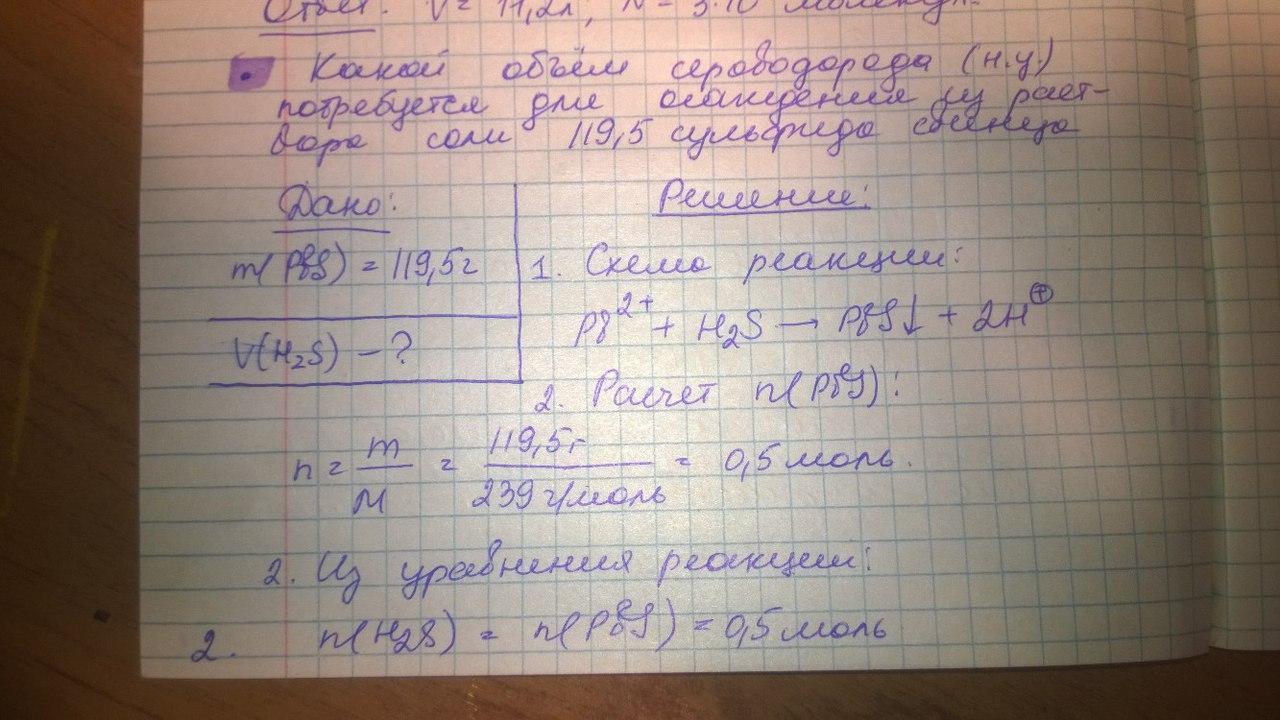 Ответ: V = 11,2л; N = 3·10 молекул.
Какой объём сероводорода (н.у)
потребуется для осаждения из раст-
вора соли 119,5 сульфида свинца
Дано:
Решение:
m(PbS) = 119,5г
V(H₂S) - ?
1. Схема реакции:
Pb²⁺ + H₂S → PbS↓ + 2H⁺
2. Расчет n(PbS):
n = m/M = 119,5г/239 г/моль = 0,5 моль.
2. Из уравнения реакции:
2. n(H₂S) = n(PbS) = 0,5 моль